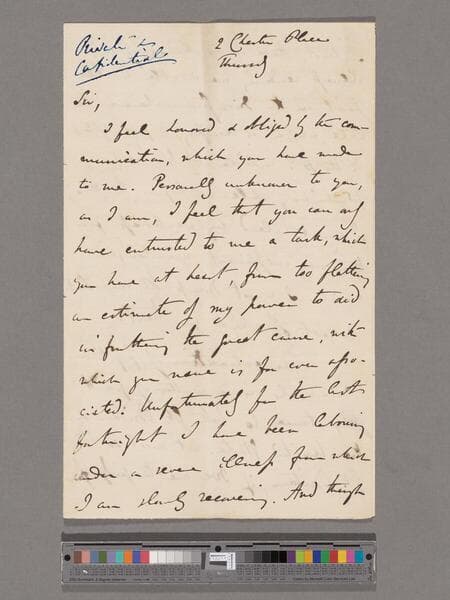 Private &
Confidential
2 Chester Place
Thursdy
Sir,
I feel honored & obliged by the com-
munication, which you have made
to me. Personally unknown to you,
as I am, I feel that you can only
have entrusted to me a task, which
you have at heart, from too flattering
an estimate of my power to aid
in furthering the great cause, with
which your name is for ever asso-
ciated: Unfortunately for the last
fortnight I have been labouring
under a severe illness from which
I am slowly recovering. And though